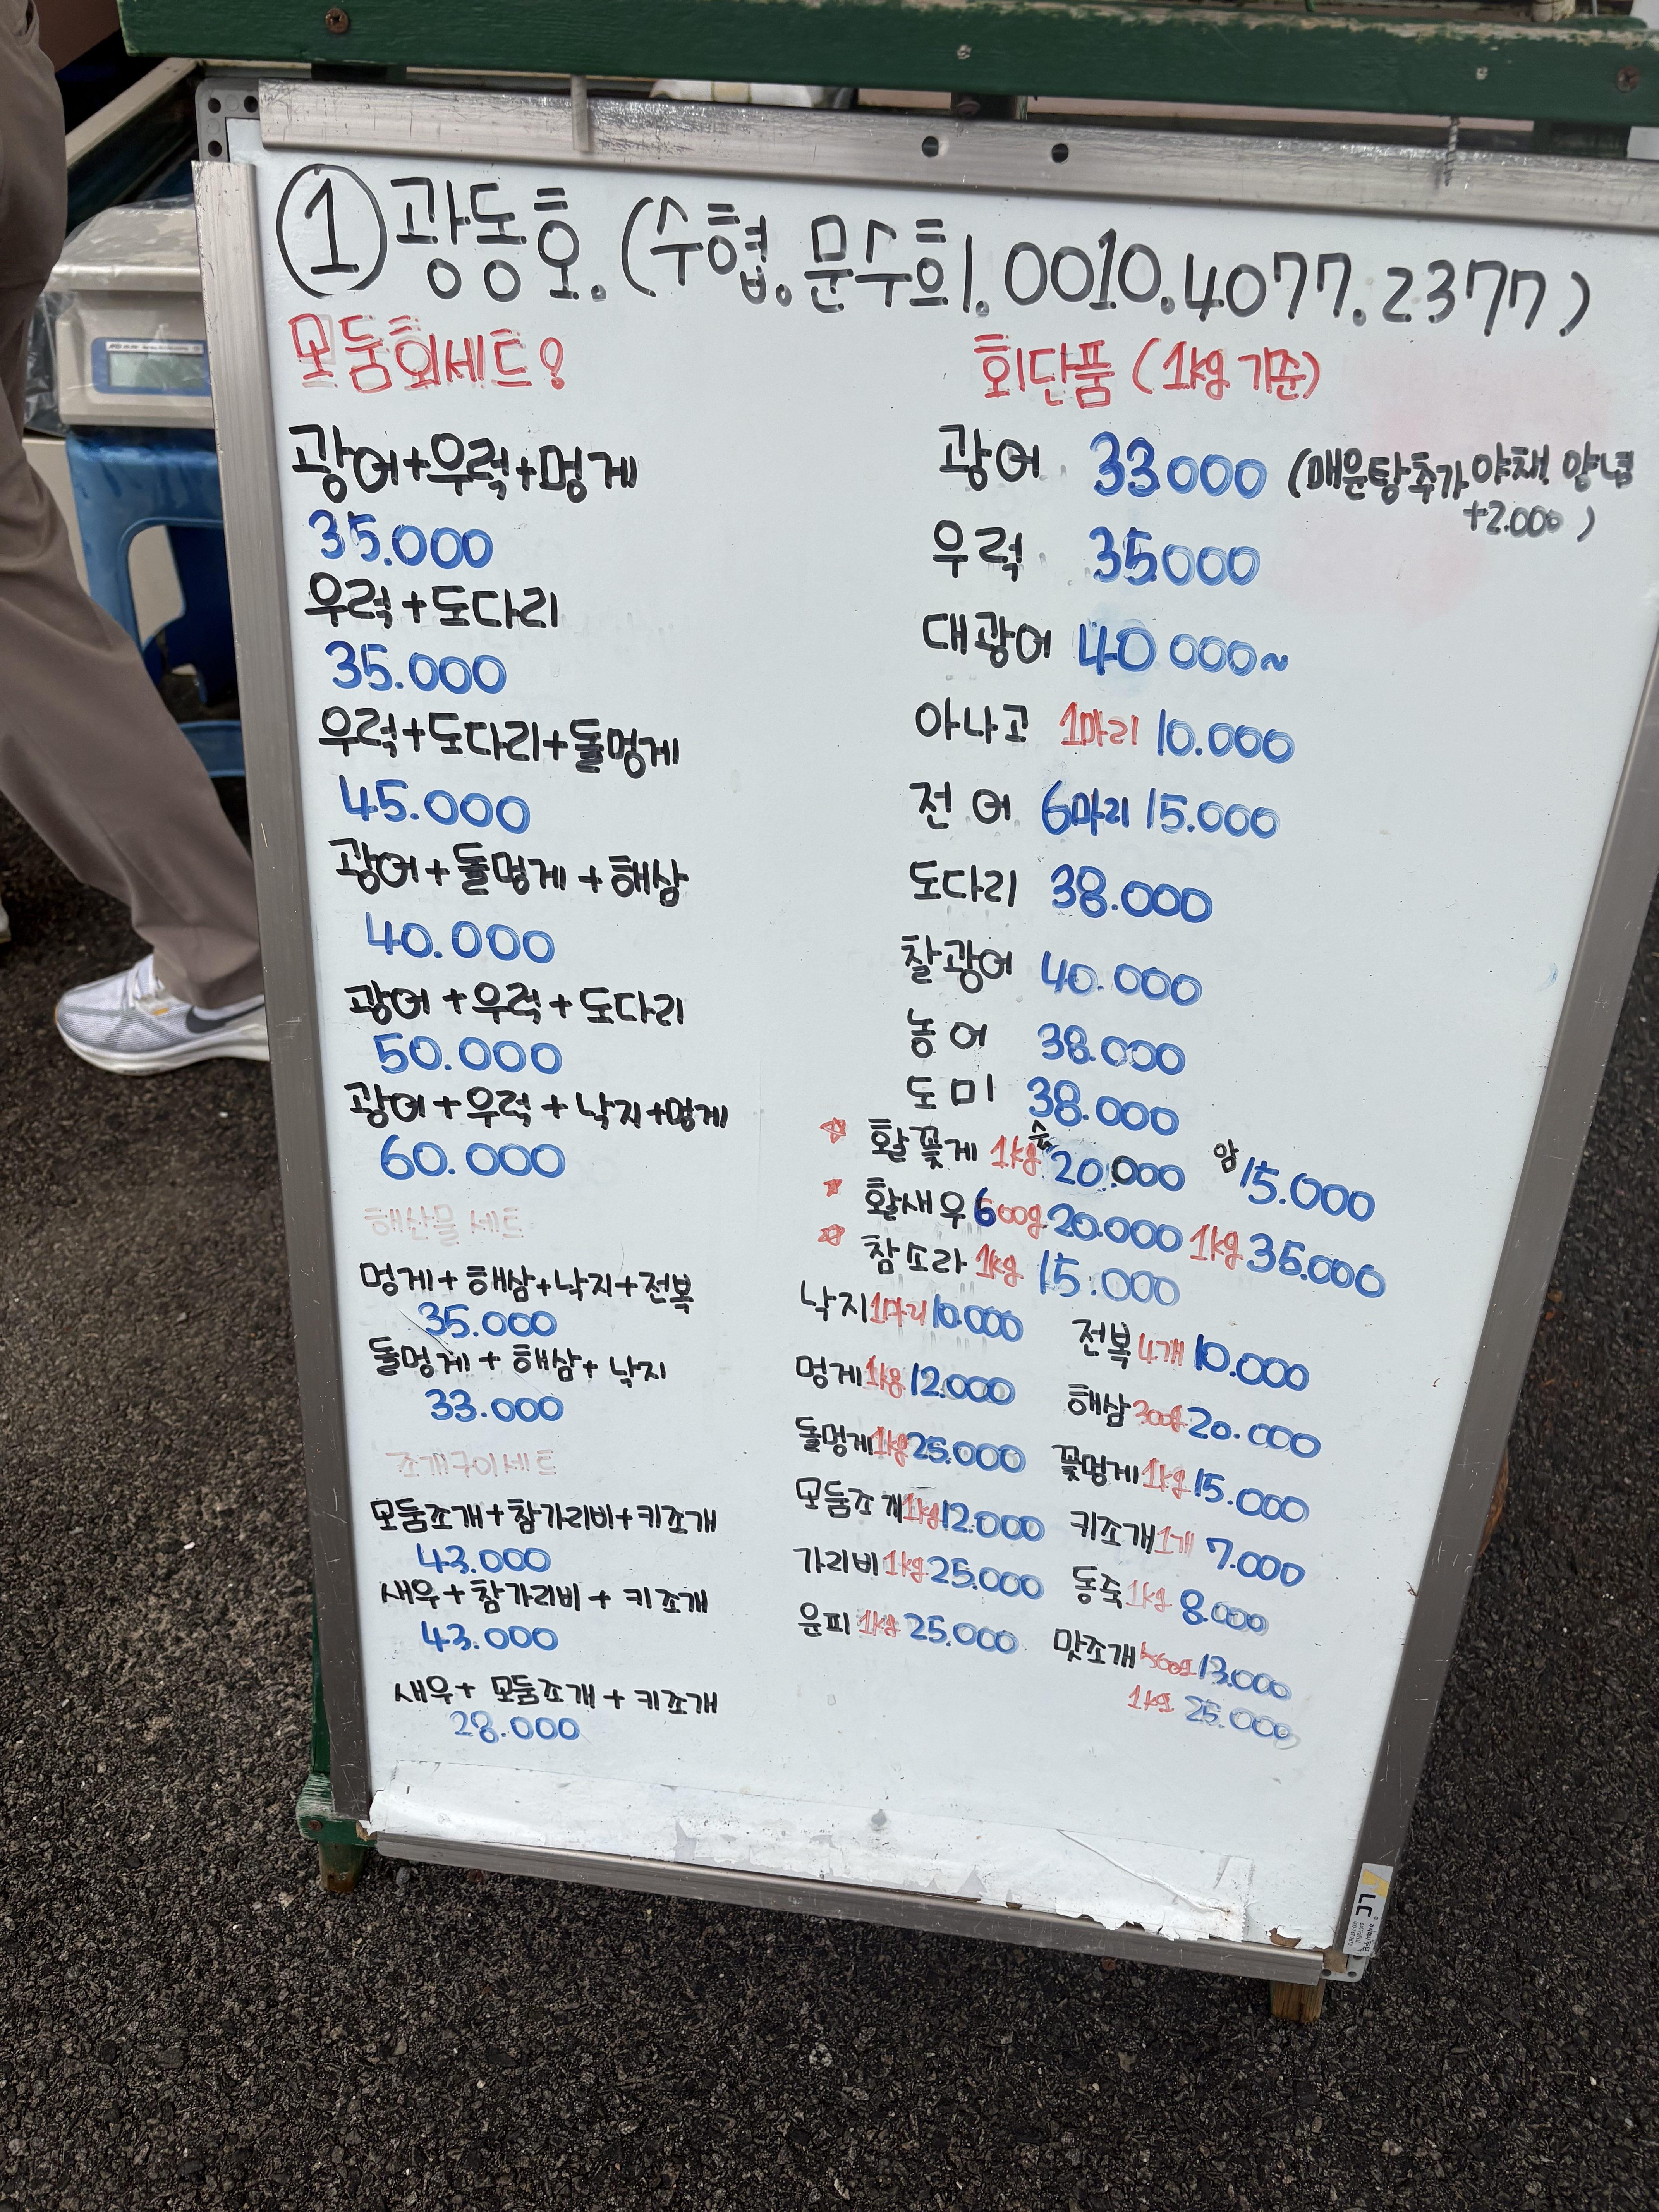 ① 광동호. (수협. 문수희. 0010.4077.2377)
모둠회세트!
광어+우럭+멍게
35.000
우럭+도다리
35.000
우럭+도다리+돌멍게
45.000
광어+돌멍게+해삼
40.000
광어+우럭+도다리
50.000
광어+우럭+낙지+멍게
60.000
해산물 세트
멍게+해삼+낙지+전복
35.000
돌멍게+해삼+낙지
33.000
조개구이세트
모둠조개+참가리비+키조개
43.000
새우+참가리비+키조개
43.000
새우+모둠조개+키조개
28.000
회단품 (1kg 기준)
광어 33000 (매운탕추가 야채, 양념
+2.000)
우럭 35000
대광어 40 000~
아나고 1마리 10.000
전어 6마리 15.000
도다리 38.000
찰광어 40.000
농어 38.000
도미 38.000
☆ 활꽃게 1kg 숫 20.000 암 15.000
★ 활새우 600g 20.000 1kg 35.000
☆ 참소라 1kg 15.000
낙지 1마리 10.000 전복 4개 10.000
멍게 1kg 12.000 해삼 300g 20.000
돌멍게 1kg 25.000 꽃멍게 1kg 15.000
모둠조개 1kg 12.000 키조개 1개 7.000
가리비 1kg 25.000 동죽 1kg 8.000
운피 1kg 25.000 맛조개 500g 13.000
1kg 25.000